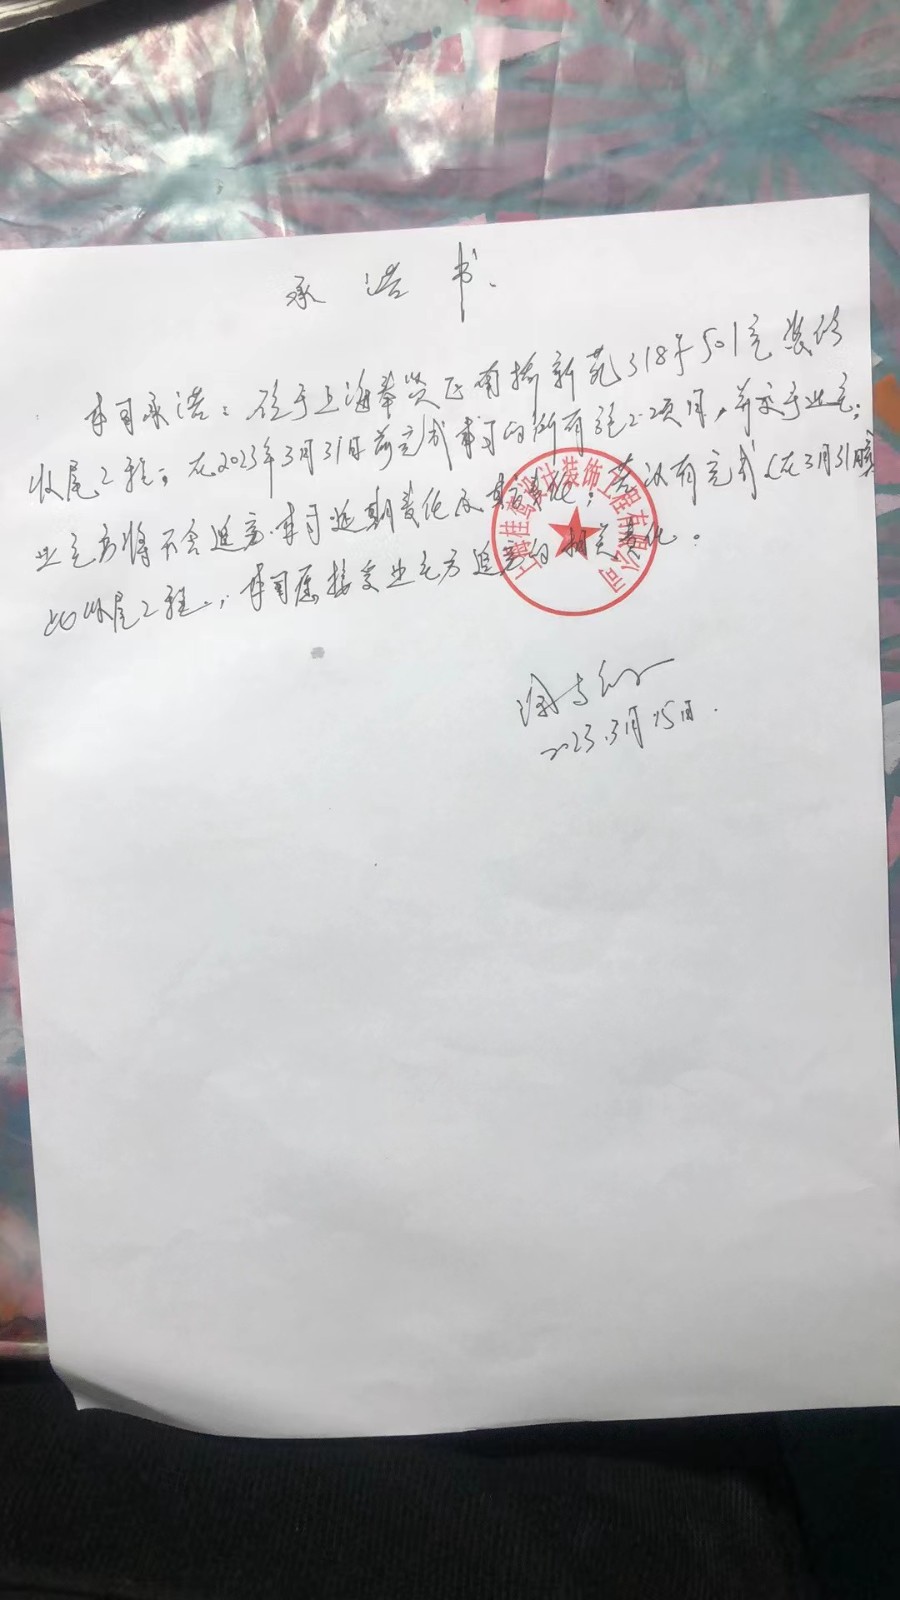 承诺书.
本司承诺：位于上海奉贤区南桥新苑318号501室装修
收尾工程；在2023年3月31日前完成本司的所有施工项目，并交于业主；
业主方将不会追究本司延期责任及其责任；若没有完成（在3月31日
此收尾工程，本司愿接受业主方追究的相关责任。
上海桂 设计装饰工程有限公司
2023.3月15日.